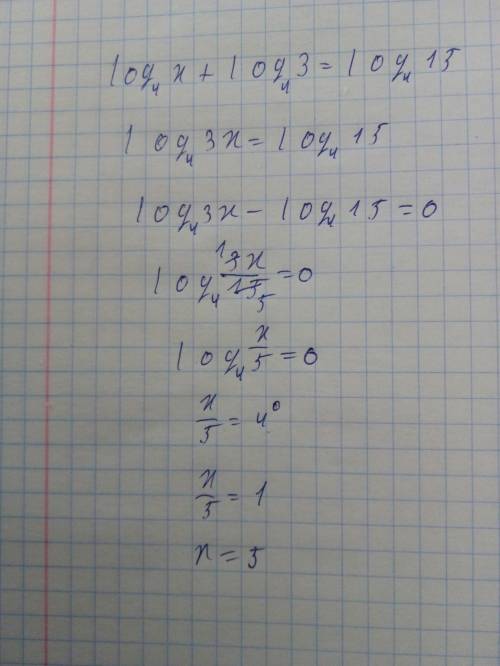 log₄ x + log₄ 3 = log₄ 15
log₄ 3x = log₄ 15
log₄ 3x − log₄ 15 = 0
log₄ ¹3x/15₅ = 0
log₄ x/5 = 0
x/5 = 4⁰
x/5 = 1
x = 5